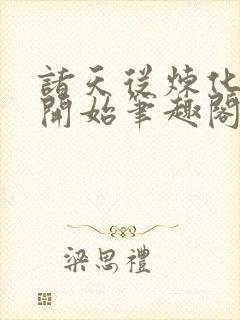 諸天從煉化
開始筆趣閣
梁思禮